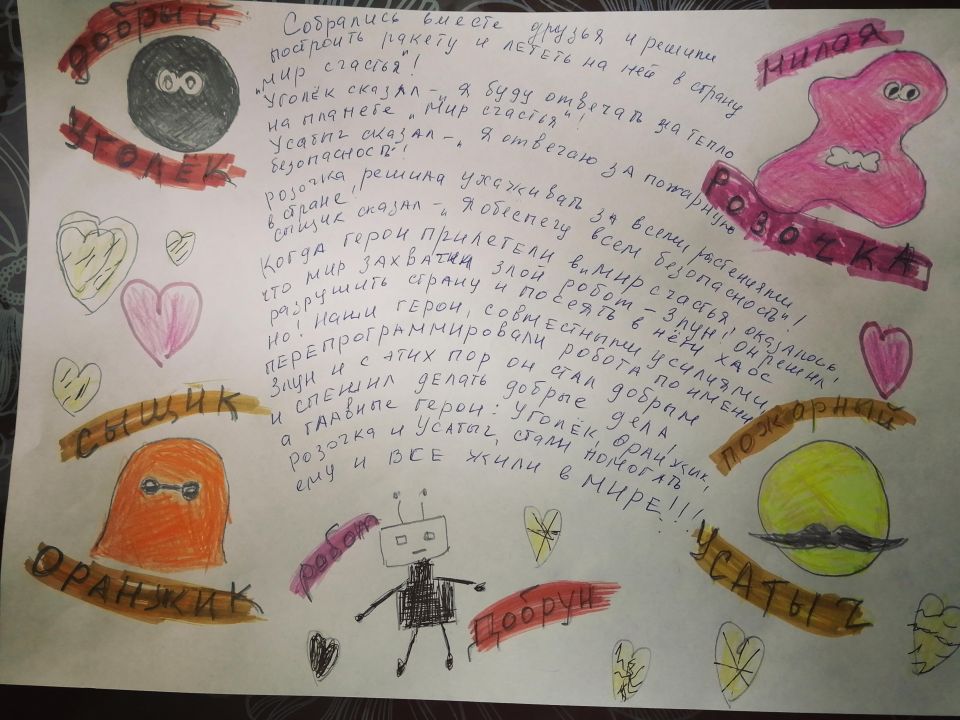 добрый
уголёк
милая
розочка
Собрались вместе друзья и решили
построить ракету и лететь на ней в страну
"мир счастья"!
Уголёк сказал - „Я буду отвечать за тепло
на планете „Мир счастья"!
Усатыч сказал - „Я отвечаю за пожарную
безопасность!
розочка решила ухаживать за всеми растениями
в стране,
сыщик сказал - „Я обеспечу всем безопасность"!
Когда герои прилетели в „мир счастья", оказалось
что мир захватил злой робот - Злун! Он решил
разрушить страну и посеять в ней хаос
но! Наши герои, совместными усилиями,
перепрограммировали робота по имени
Злун и с этих пор он стал добрым
и спешил делать добрые дела
а главные герои: Уголёк, Оранжик,
розочка и Усатыч, стали помогать
ему и ВСЕ жили в МИРЕ!!!
сыщик
оранжик
пожарный
усатыч
робот
Добрун